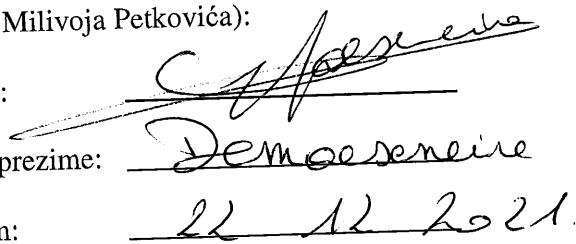 Milivoja Petkovića):
:
prezime: Demoeseneire
m: 22 12 2021.